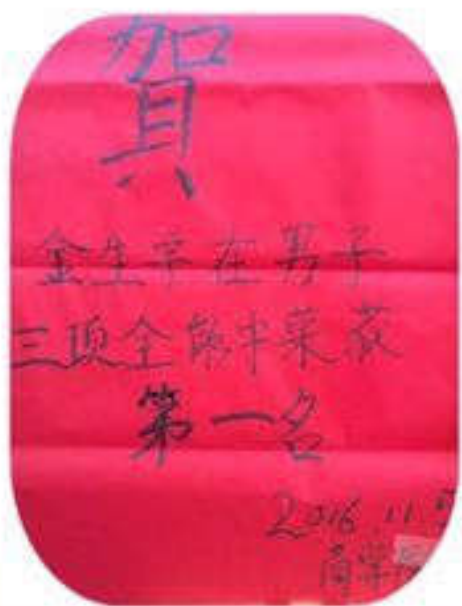 賀
金生宇在男子
三项全能中荣获
第一名
2016.11
商学